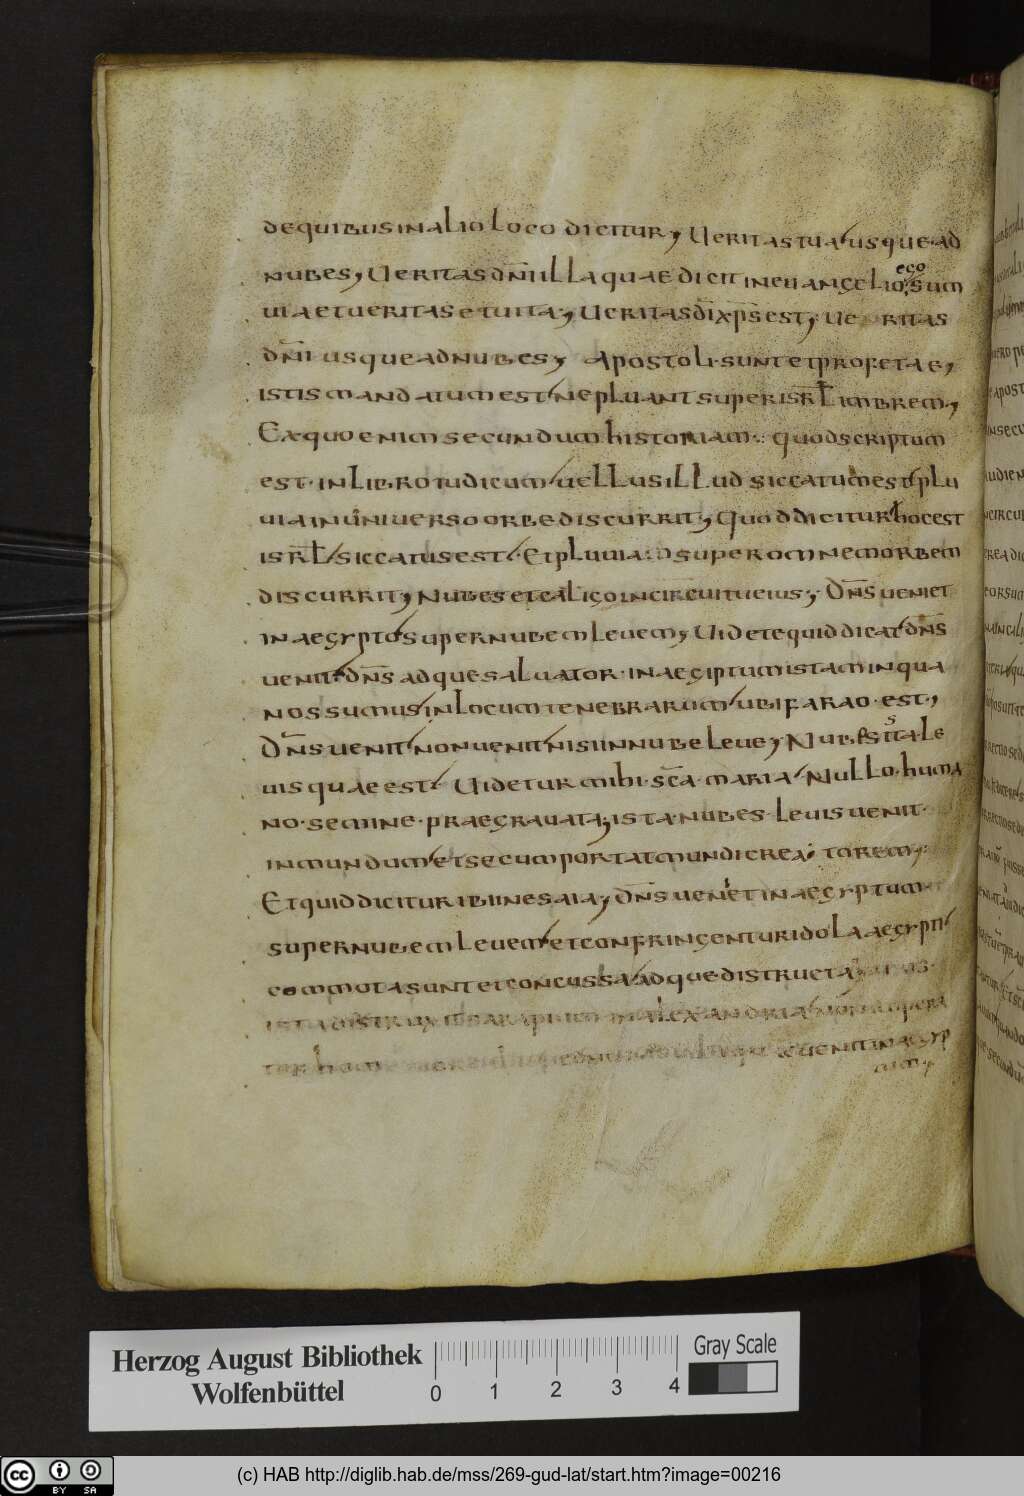 dequibus in alio loco dicitur, Ueritas tua usque ad
nubes, Ueritas dn̄i illa quae dicit in euangelio, ego sum
uia et ueritas et uita, Ueritas dī xp̄s est, ueritas
dn̄i usque ad nubes, Apostoli sunt et profetae,
istis mandatum est ne pluant super isrl̄ imbrem,
Ex quo enim secundum historiam quod scriptum
est in libro iudicum uellus illud siccatum est plu
uia in uniuerso orbe discurrit, Quod dicitur hoc est
isrl̄ siccatus est. Et pluuia super omnem orbem
discurrit, Nubes et caligo in circuitu eius, Dn̄s ueniet
in aegypto super nubem leuem, Uidete quid dicat dn̄s
uenit dn̄s adque saluator in aegiptum istam in qua
nos sumus in locum tenebrarum ubi farao est,
Dn̄s uenit non uenit nisi in nube leue, Nubes ista le
uis quae est Uidetur mihi sc̄a maria Nullo huma
no semine praegrauata, ista nubes leuis uenit
in mundum et secum portat mundi creatorem,
Et quid dicitur ibi in esaia, Dn̄s ueniet in aegyptum
super nubem leuem et confringentur idola aegypti
commota sunt et concussa adque distructa,
ista distruxit sarapium in alexandria non opera
tor uenit in aegyp
tum,
Herzog August Bibliothek
Wolfenbüttel
0 1 2 3 4
Gray Scale
cc BY SA
(c) HAB http://diglib.hab.de/mss/269-gud-lat/start.htm?image=00216